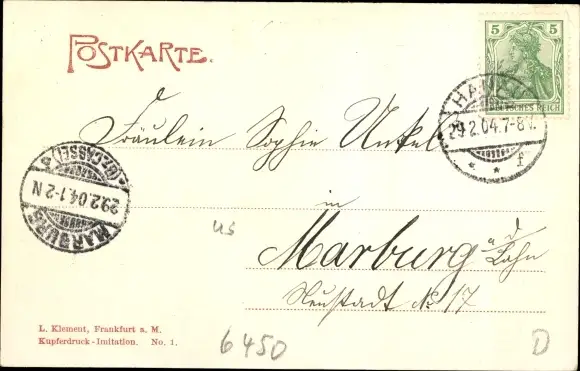 POSTKARTE.
5 5
DEUTSCHES REICH
HANAU
29.2.04.7-8V.
* * f
MARBURG
29.2.04.1-2N
(BZ.CASSEL)
Fräulein Sophie Unkel
in
Marburg a/d Lahn
Neustadt No 17
us
L. Klement, Frankfurt a. M.
Kupferdruck-Imitation. No. 1.
6450
D